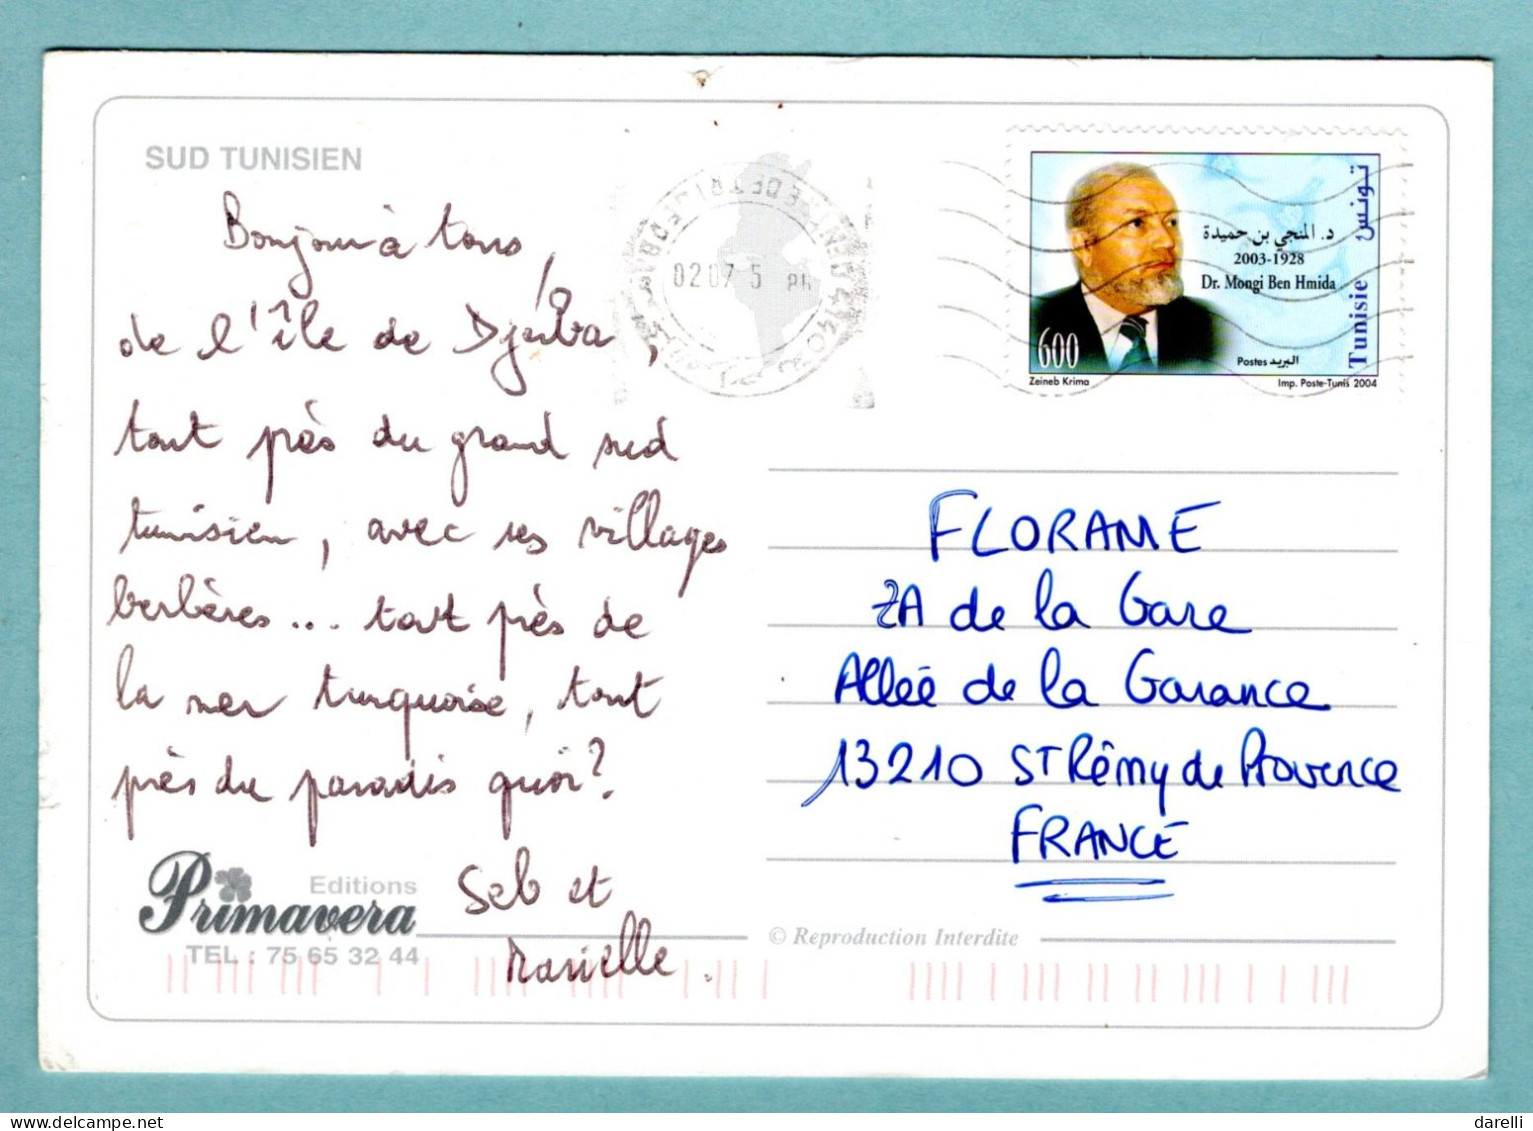 SUD TUNISIEN
Bonjour à tous,
de l'île de Djerba,
tout près du grand sud
tunisien, avec ses villages
berbères... tout près de
la mer turquoise, tout
près du paradis quoi?
Seb et
Marielle.
Editions
Primavera
TEL : 75 65 32 44
© Reproduction Interdite
0207 5 PM
د. المنجي بن حميدة
2003-1928
Dr. Mongi Ben Hmida
تونس
Tunisie
600
Postes البريد
Zeineb Krima
Imp. Poste-Tunis 2004
FLORAME
ZA de la Gare
Allée de la Garance
13210 ST Rémy de Provence
FRANCE
darelli